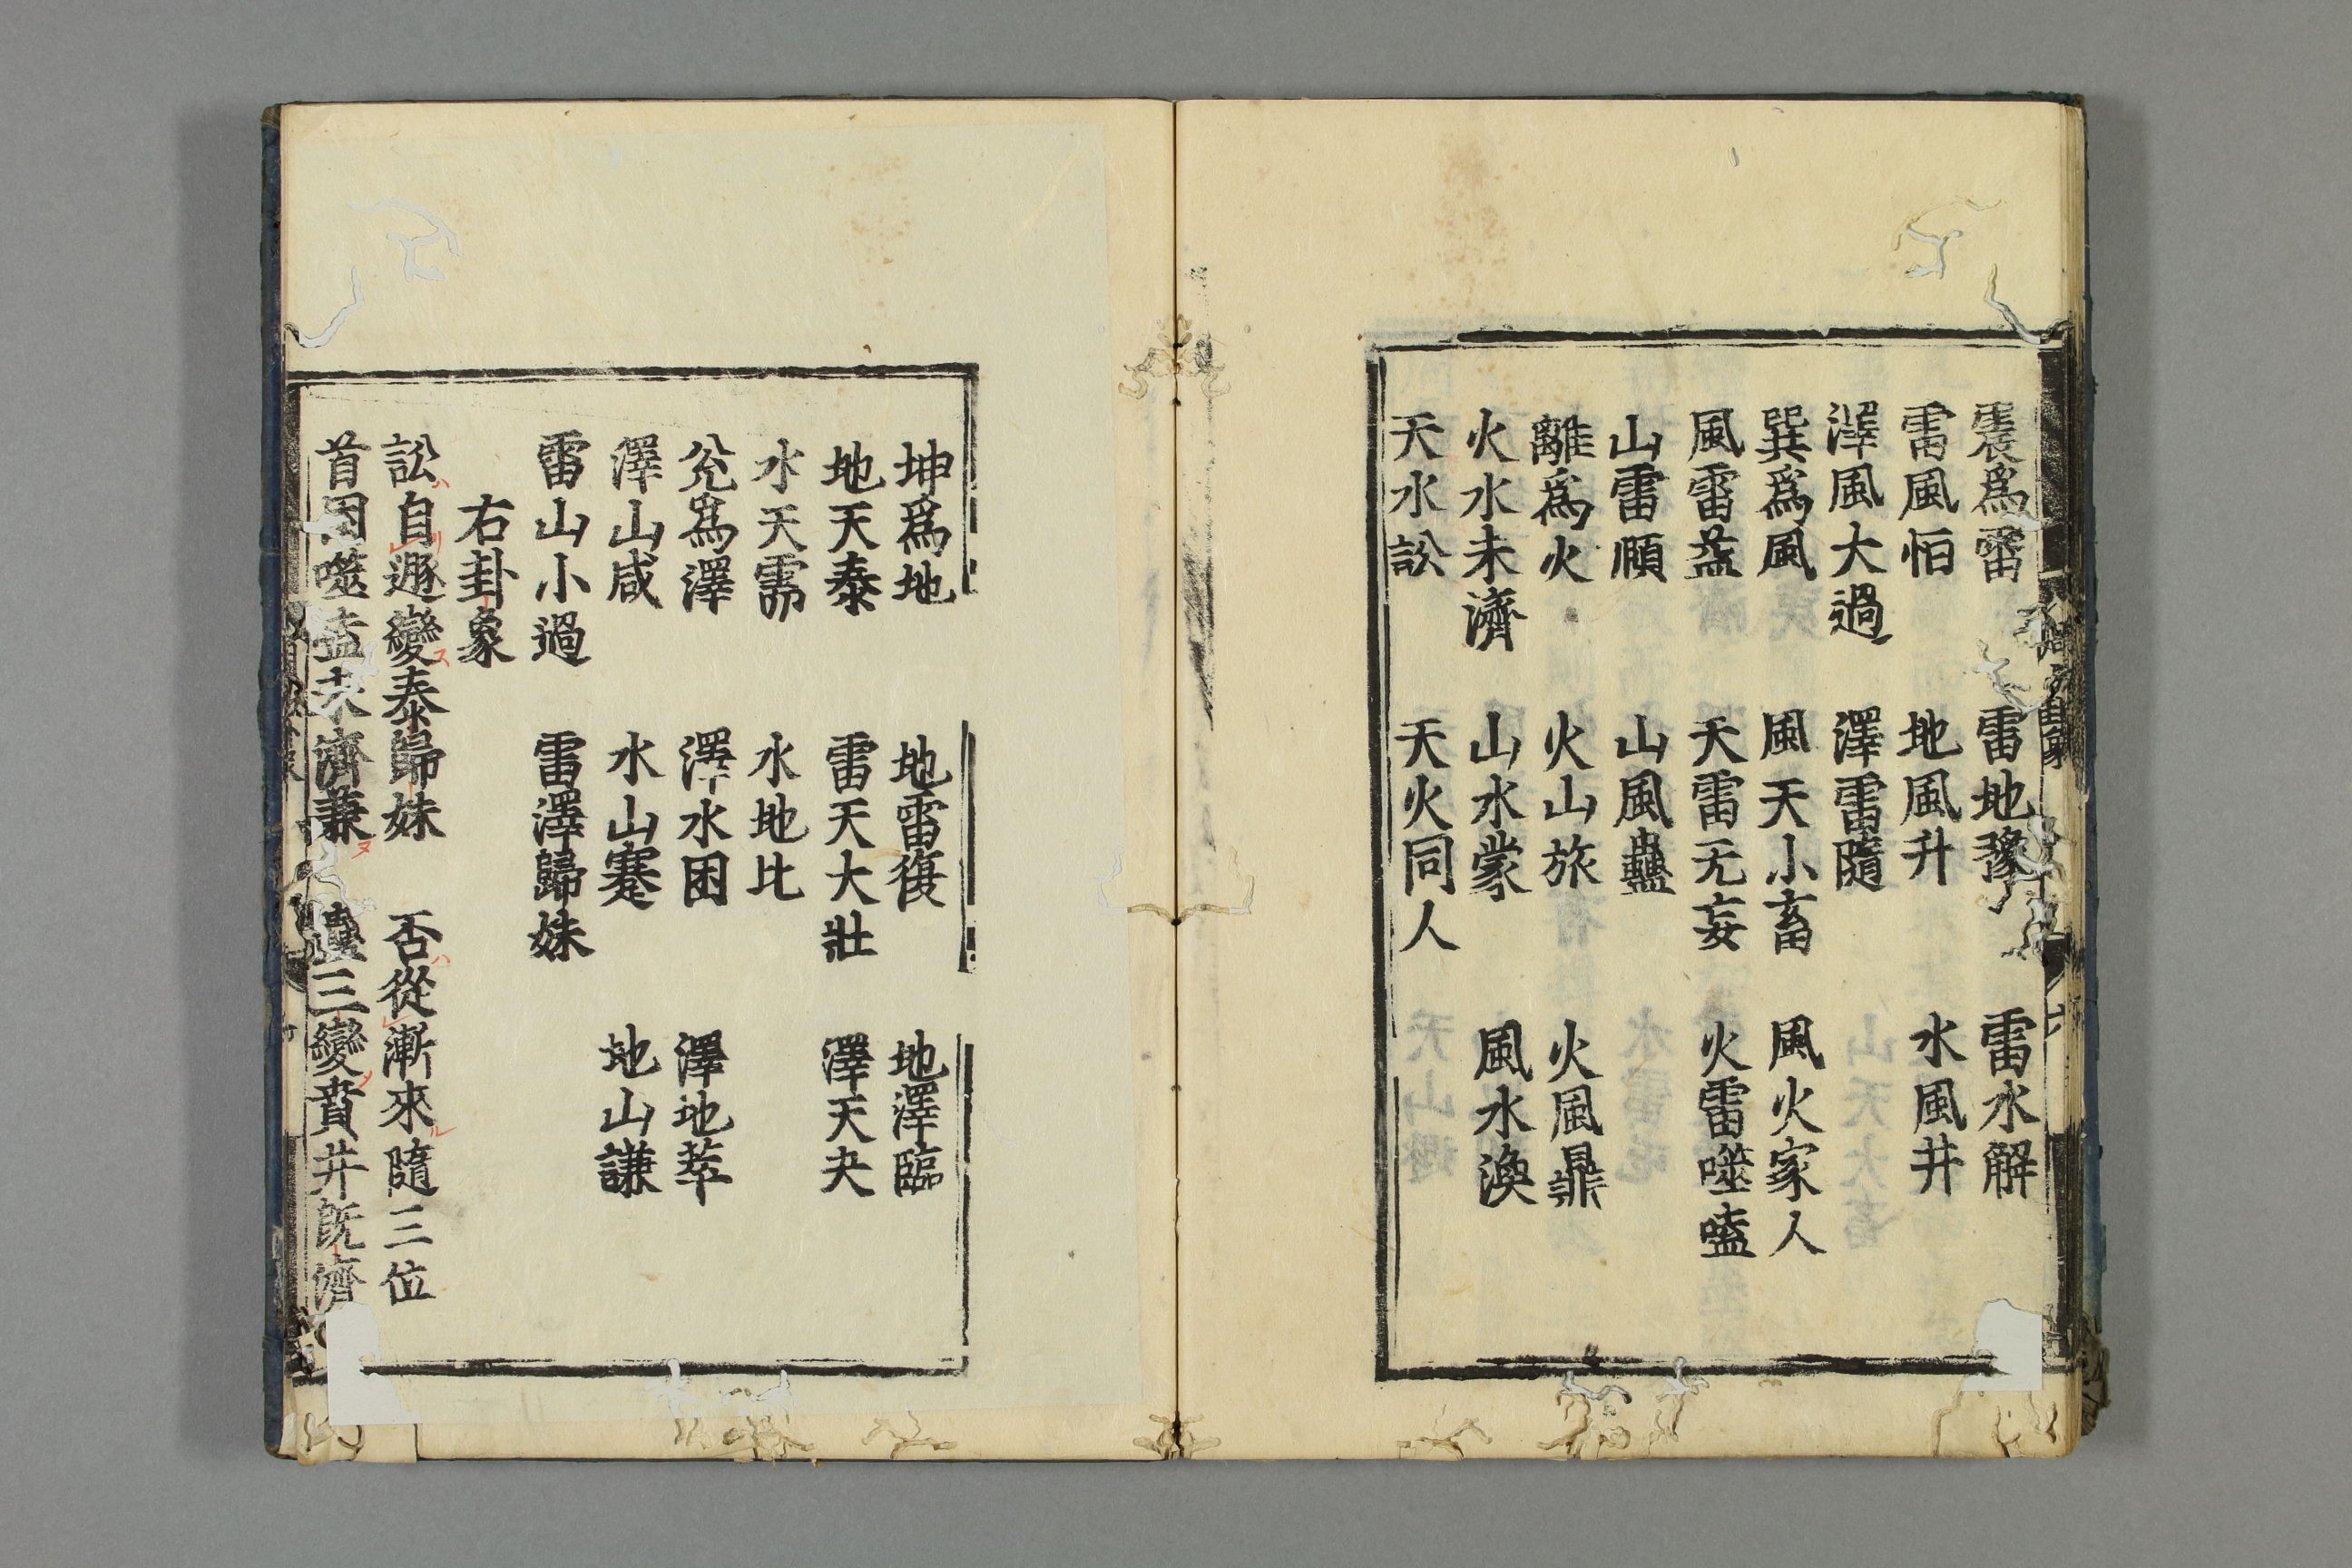 震爲雷 雷地豫 雷水解
雷風恒 地風升 水風井
澤風大過 澤雷隨
巽爲風 風天小畜 風火家人
風雷益 天雷无妄 火雷噬嗑
山雷頤 山風蠱
離爲火 火山旅 火風鼎
火水未濟 山水蒙 風水渙
天水訟 天火同人
坤爲地 地雷復 地澤臨
地天泰 雷天大壯 澤天夬
水天需 水地比
兊爲澤 澤水困 澤地萃
澤山咸 水山蹇 地山謙
雷山小過 雷澤歸妹
右卦象
訟ハ自リレ遯變ス泰歸妹 否ハ從レ漸來ル隨三位
首困噬嗑未濟兼ヌ 蠱三變ノ賁井旣濟